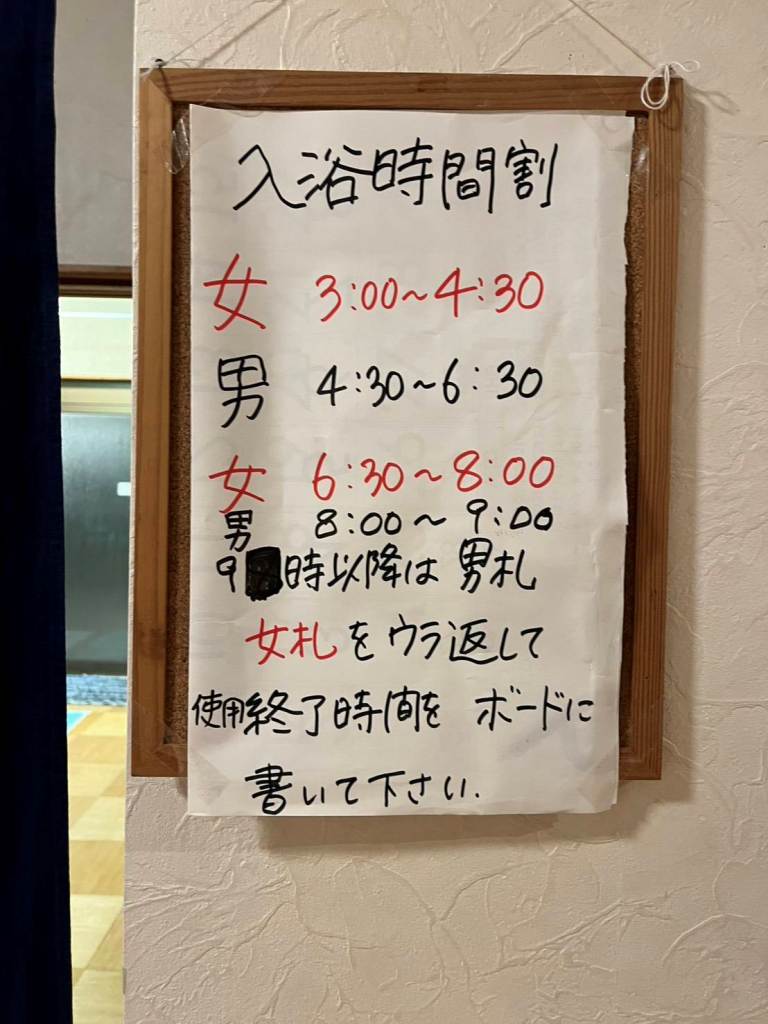 入浴時間割
女 3:00~4:30
男 4:30~6:30
女 6:30~8:00
男 8:00~9:00
9時以降は 男札
女札をウラ返して
使用終了時間を ボードに
書いて下さい.